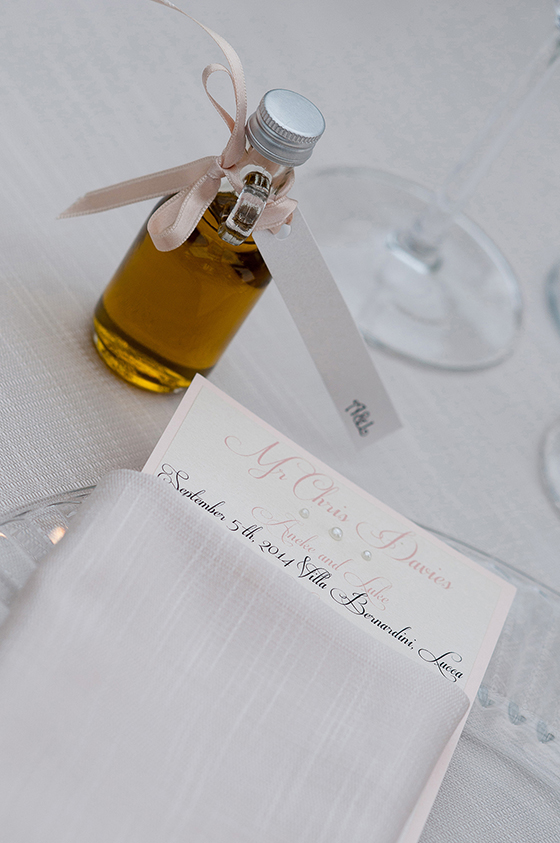 Mr Chris Davies
Aneke and Luke
September 5th, 2014 Villa Bernardini, Lucca